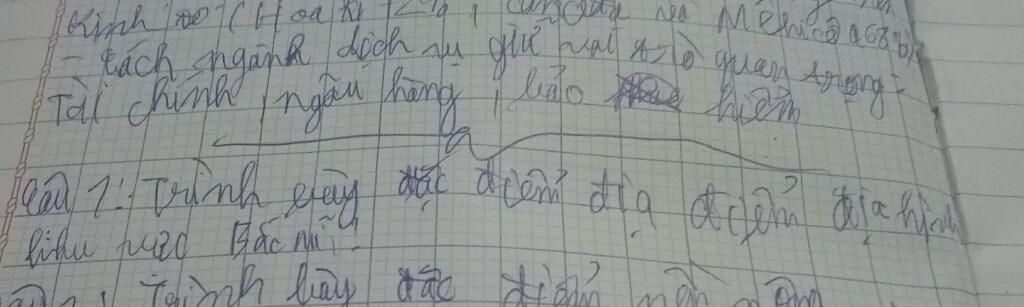 Kinh tế (Hoa Kì
- Các ngành dịch vụ giữ vai trò quan trọng:
Tài chính, ngân hàng, bảo hiểm
Câu 7: Trình bày đặc điểm địa điểm địa hình
khu vực Bắc Mĩ.
Trình bày đặc điểm nền